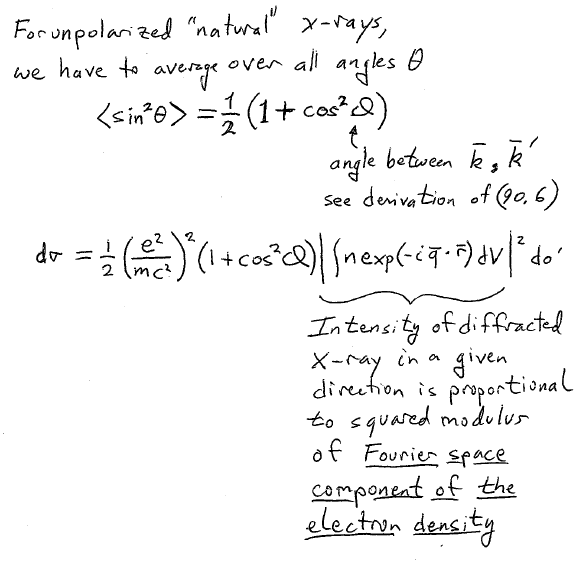 For unpolarized "natural" x-rays,
we have to average over all angles θ
<sin²θ> = 1/2 (1 + cos²ϑ)
↑
angle between k̄, k̄′
see derivation of (90,6)
dσ = 1/2 (e²/mc²)² (1 + cos²ϑ) |∫n exp(-i q̄·r̄) dV|² do′
Intensity of diffracted
X-ray in a given
direction is proportional
to squared modulus
of Fourier space
component of the
electron density